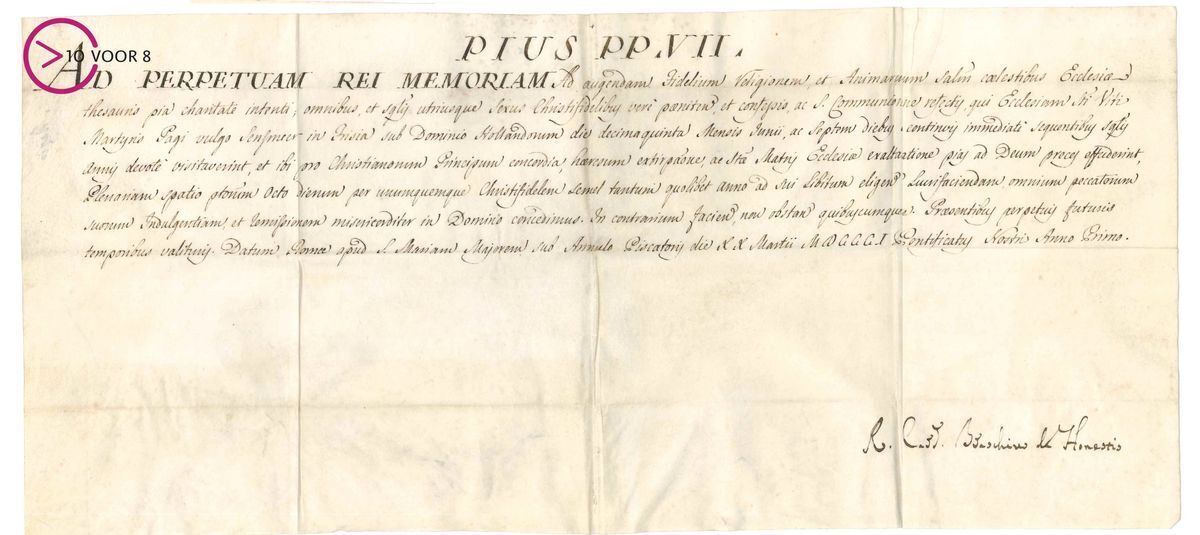 10 VOOR 8
PIUS PP.VII.
AD PERPETUAM REI MEMORIAM Ad augendam Fidelium Religionem, et Animarum Salm̃ cœlestibus Ecclesiæ
thesauris pia charitate intenti, omnibus, et sglis utriusque Sexus Christifidelibus vere peniten, et confessis, ac S. Communione refectis qui Ecclesiam Sti Viti
Martyris Pagi vulgo in Frisia sub Dominio Hollandrum die decimaquinta Mensis Junii, ac Septem diebus continuis immediate sequentibus sglis
Annis devote visitaverint, et ibi pro Christianorum Principum concordia, hæresum extirpãone, ac Stæ Matris Ecclesiæ exaltatione pias ad Deum preces effuderint,
Plenariam spatio Octo dierum per unumquemque Christifidelem Semel tantum quolibet anno ad sui libitum eligen Lucrifaciendam omnium peccatorum
suorum Indulgentiam, et remissionem misericorditer in Domino concedimus. In contrarium facien non obstan quibuscumque. Præsentibus perpetuis futuris
temporibus valituris. Datum Romæ apud S. Mariam Majorem sub Annulo Piscatoris die XX Martii MDCCCI Pontificatus Nostri Anno Primo.
R. Card. Braschius de Honestis